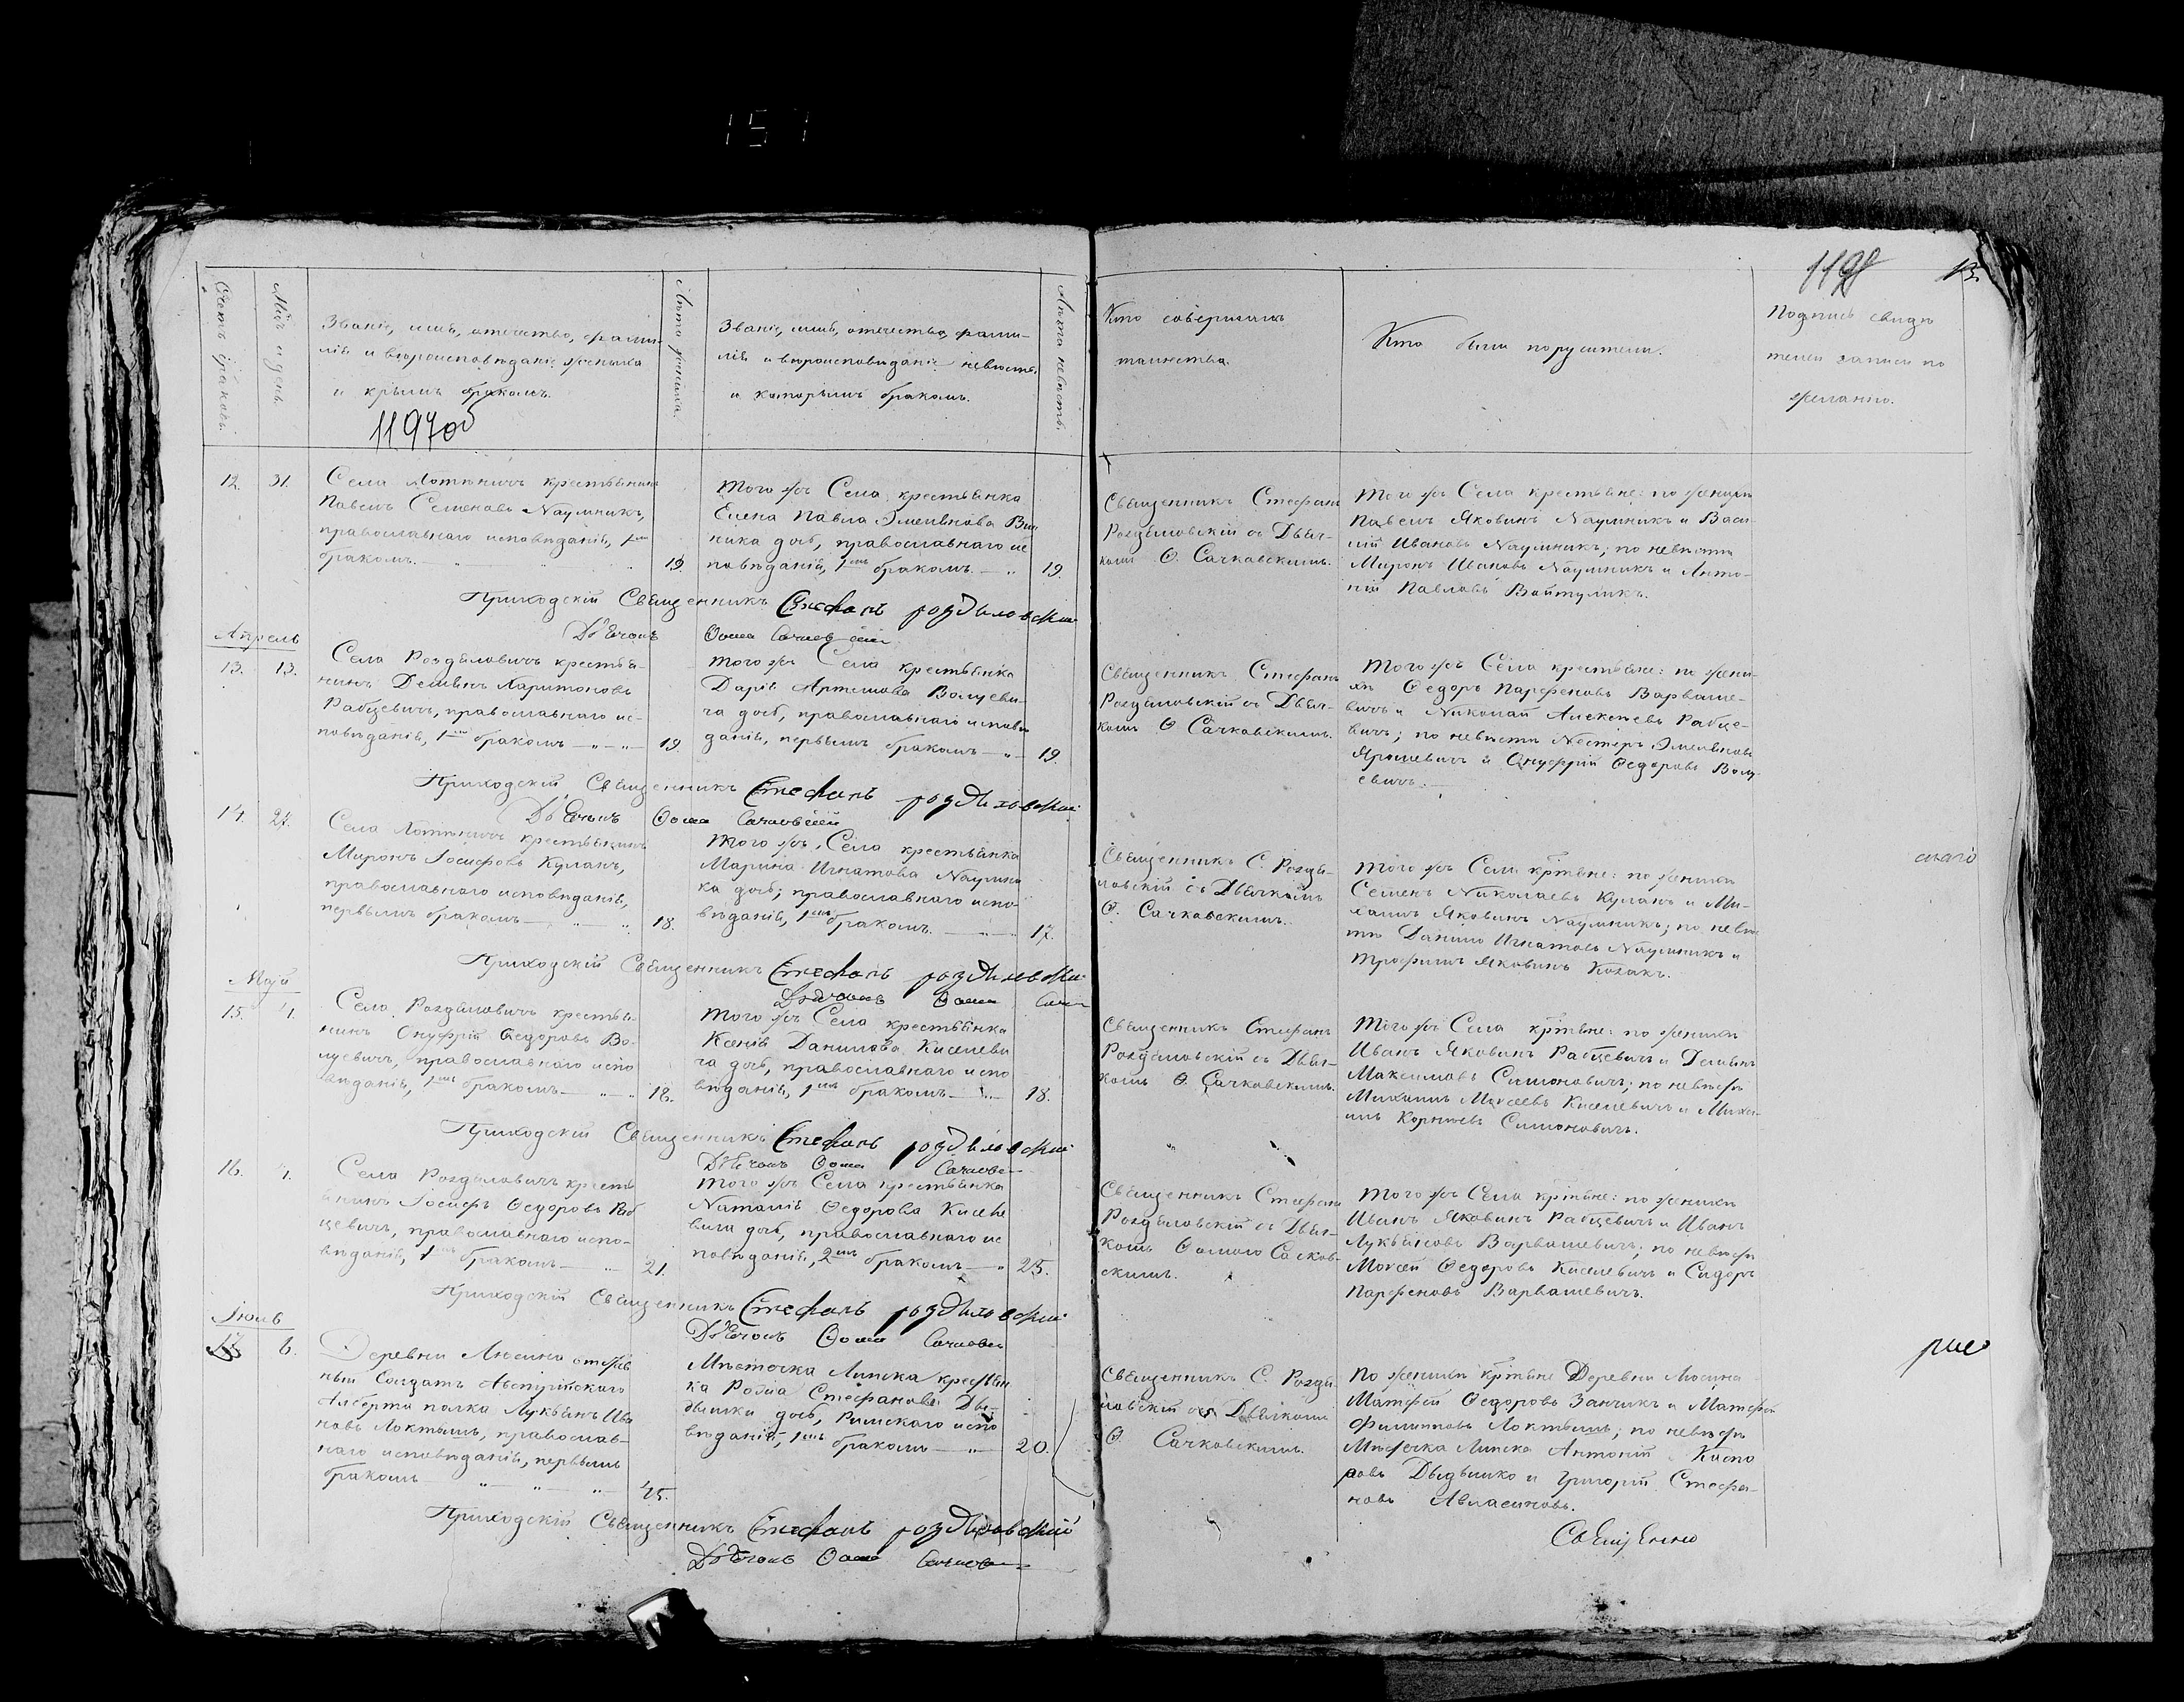 157
1198
13.
Счетъ браковъ.
Мцъ и день.
Званіе, имя, отечество, фами-
лія и вѣроисповѣданіе жениха
и крымъ бракомъ.
1197об
Лѣта жениха.
Званіе, имя, отечество, фами-
лія и вѣроисповѣданіе невѣсты,
и которымъ бракомъ.
Лѣта невѣсты.
Кто совершалъ
таинство.
Кто были поручители.
Подпись свидѣ
телей записи по
желанію.
12. 31.
Села крестьянинъ
Павелъ Семеновъ Наумникъ,
православнаго исповѣданія, 1мъ
бракомъ. 19.
Того жъ Села крестьянка
Елена Павла Емельянова
ника дочь, православнаго ис
повѣданія, 1мъ бракомъ. 19.
Священникъ Стефанъ
Роздяловскій съ Дьяч-
комъ Ѳ. Сачковскимъ.
Того жъ Села крестьяне: по женихѣ
Павелъ Яковинъ Наумникъ и Васи-
лій Ивановъ Наумникъ; по невѣстѣ
Миронъ Ивановъ Наумникъ и Анто-
ній Павловъ Войтуликъ.
Приходскій Священникъ Стефанъ Роздяловскій
Дьячокъ Ѳома
Апрель
13. 13.
Села Роздяловичъ крестья-
нинъ Демьянъ Харитоновъ
Рабцевичъ, православнаго ис-
повѣданія, 1мъ бракомъ 19
Того жъ Села крестьянка
Дарія Артемова Волцеви-
ча дочь, православнаго исповѣ
данія, первымъ бракомъ 19.
Священникъ Стефанъ
Роздяловскій съ Дьяч-
комъ Ѳ Сачковскимъ.
Того жъ Села крестьяне: по жени-
хѣ Ѳедоръ Парфеновъ Варваше-
вичъ и Николай Алексѣевъ Рабце-
вичъ; по невѣстѣ Нестеръ Емельяновъ
Ярошевичъ и Онуфрій Ѳедоровъ Волц-
евичъ.
Приходскій Священникъ Стефанъ Роздяловскій
Дьячокъ Ѳома Сачковскій
14. 27.
Села крестьянинъ
Миронъ Іосифовъ Куланъ,
православнаго исповѣданія,
первымъ бракомъ 18.
Того жъ Села крестьянка
Марина Игнатова Наумни
ка дочь; православнаго испо-
вѣданія, 1мъ бракомъ. 17.
Священникъ С. Роздя-
ловскій съ Дьячкомъ
Ѳ. Сачковскимъ.
Того жъ Села кртяне: по женихѣ
Семенъ Николаевъ Куланъ и Ми-
хаилъ Яковинъ Наумникъ; по невѣс
тѣ Данило Игнатовъ Наумникъ и
Трофимъ Яковинъ Козакъ.
скаго
Приходскій Священникъ Стефанъ Роздяловскій
Дьячокъ Ѳома
Май
15. 4.
Села Роздяловичъ крестья-
нинъ Онуфрій Ѳедоровъ Во-
лцевичъ, православнаго испо
вѣданія, 1мъ бракомъ 18.
Того жъ Села крестьянка
Ксенія Данилова Киселеви
ча дочь, православнаго испо
вѣданія, 1мъ бракомъ 18.
Священникъ Стефанъ
Роздяловскій съ Дьяч-
комъ Ѳ. Сачковскимъ.
Того жъ Села кртяне: по женихѣ
Иванъ Яковинъ Рабцевичъ и Демьянъ
Максимовъ Симоновичъ; по невѣстѣ
Михаилъ Моисеевъ Киселевичъ и Миха-
илъ Корнѣевъ Симоновичъ.
Приходскій Священникъ Стефанъ Роздяловскій
Дьячокъ Ѳома
16. 4.
Села Роздяловичъ крестья
янинъ Іосифъ Ѳедоровъ Раб
цевичъ, православнаго испо-
вѣданія, 1мъ бракомъ 21.
Того жъ Села крестьянка
Наталія Ѳедорова Киселе
вича дочь, православнаго ис
повѣданія, 2мъ бракомъ 25.
Священникъ Стефанъ
Роздяловскій съ Дьяч-
комъ Ѳомою Сачков-
скимъ.
Того жъ Села кртяне: по женихѣ
Иванъ Яковинъ Рабцевичъ и Иванъ
Лукьяновъ Варвашевичъ; по невѣстѣ
Моисей Ѳедоровъ Киселевичъ и Сидоръ
Парфеновъ Варвашевичъ.
Приходскій Священникъ Стефанъ Роздяловскій
Дьячокъ Ѳома
Іюль
17 6.
Деревни Люсина отстав
ный Солдатъ Австрійского
Алберта полка Лукьянъ Ива
новъ Локтышъ, православ-
наго исповѣданія, первымъ
бракомъ 45.
Мѣсточка Липска крестьян
ка Розиа Стефанова Ды-
дышки дочь, Римскаго испо
вѣданія, 1мъ бракомъ 20.
Священникъ С. Роздя-
ловскій съ Дьячкомъ
Ѳ Сачковскимъ.
По женихѣ кртяне Деревни Люсина
Матфей Ѳедоровъ Занчикъ и Матфей
Филиповъ Локтышъ; по невѣстѣ
Мѣстечка Липска Антоній Каспо
ровъ Дыдышко и Григорій Стефа-
новъ
Приходскій Священникъ Стефанъ Роздяловскій
Дьячокъ Ѳома